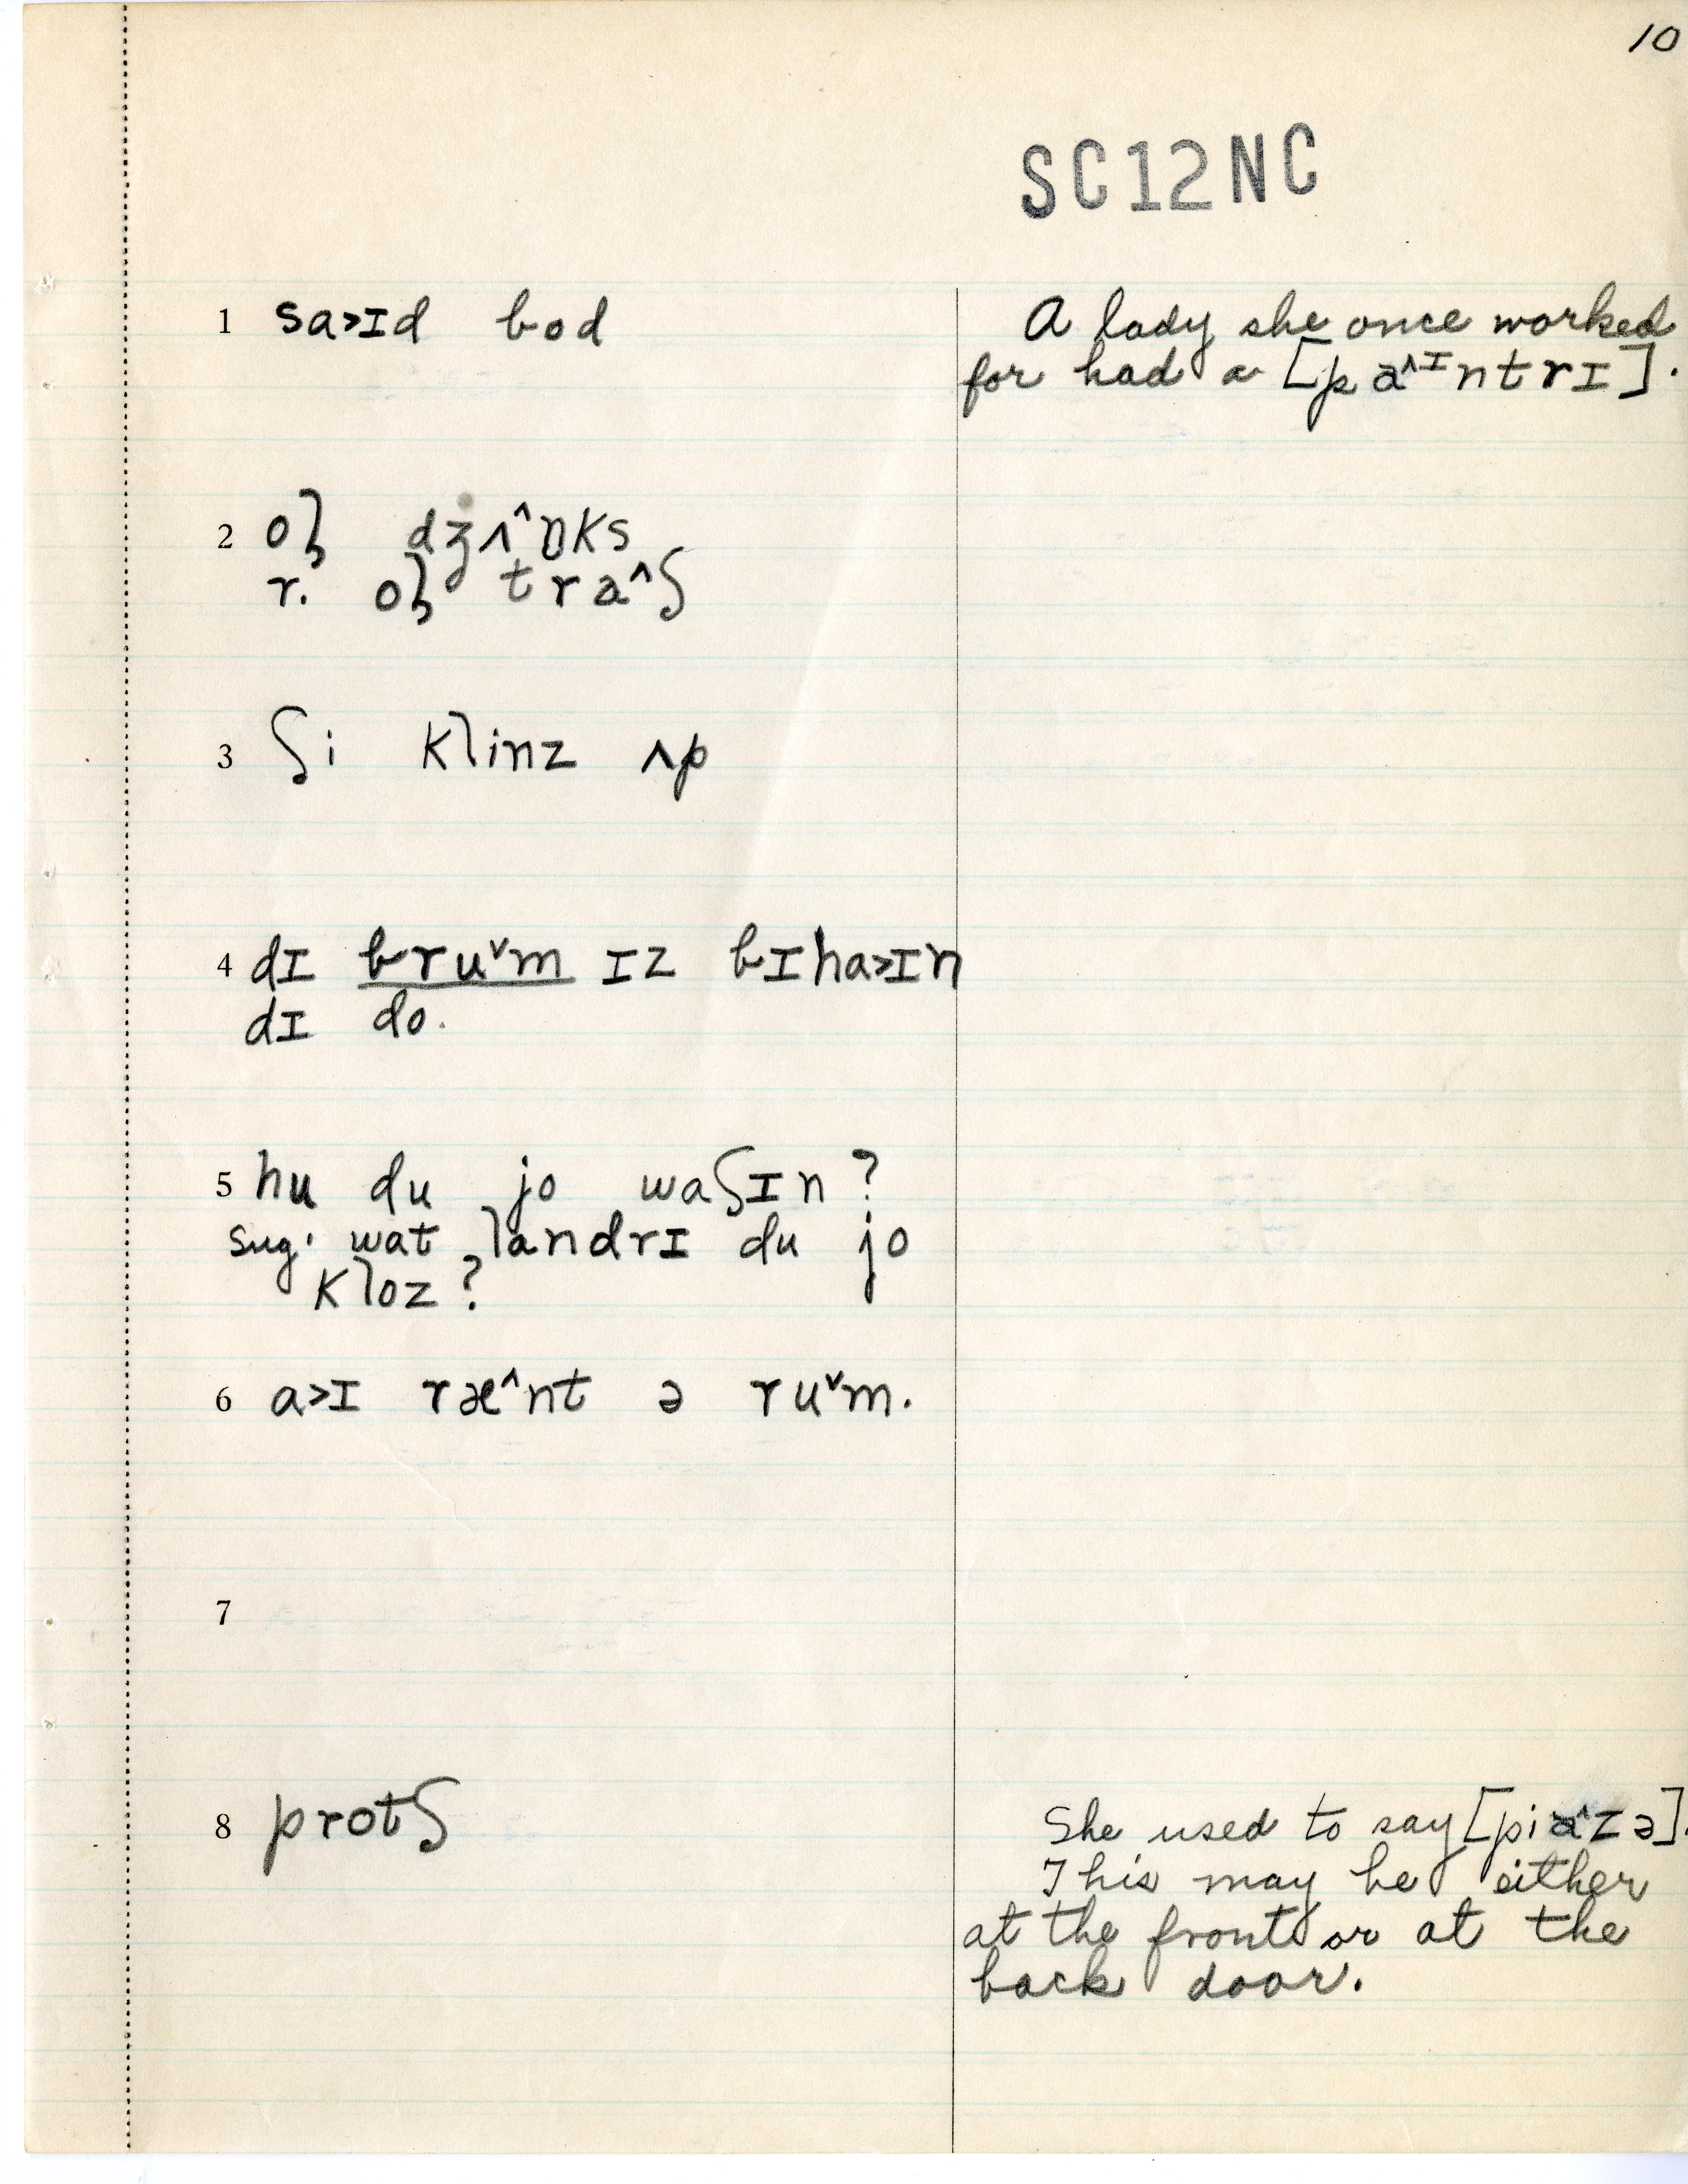 10
SC12NC
1 sa>ɪd bod
A lady she once worked
for had a [pa^ɪntrɪ].
2 oɮ dʒʌ^ŋks
r. oɮ tra^ʃ
3 ʃi klinz ʌp
4 dɪ bruᵛm ɪz bɪha>ɪn
dɪ do.
5 hu du jo waʃɪn?
sug. wat landrɪ du jo
kloz?
6 a>ɪ ræ^nt ə ruᵛm.
7
8 protʃ
She used to say [pia^zə].
This may be either
at the front or at the
back door.